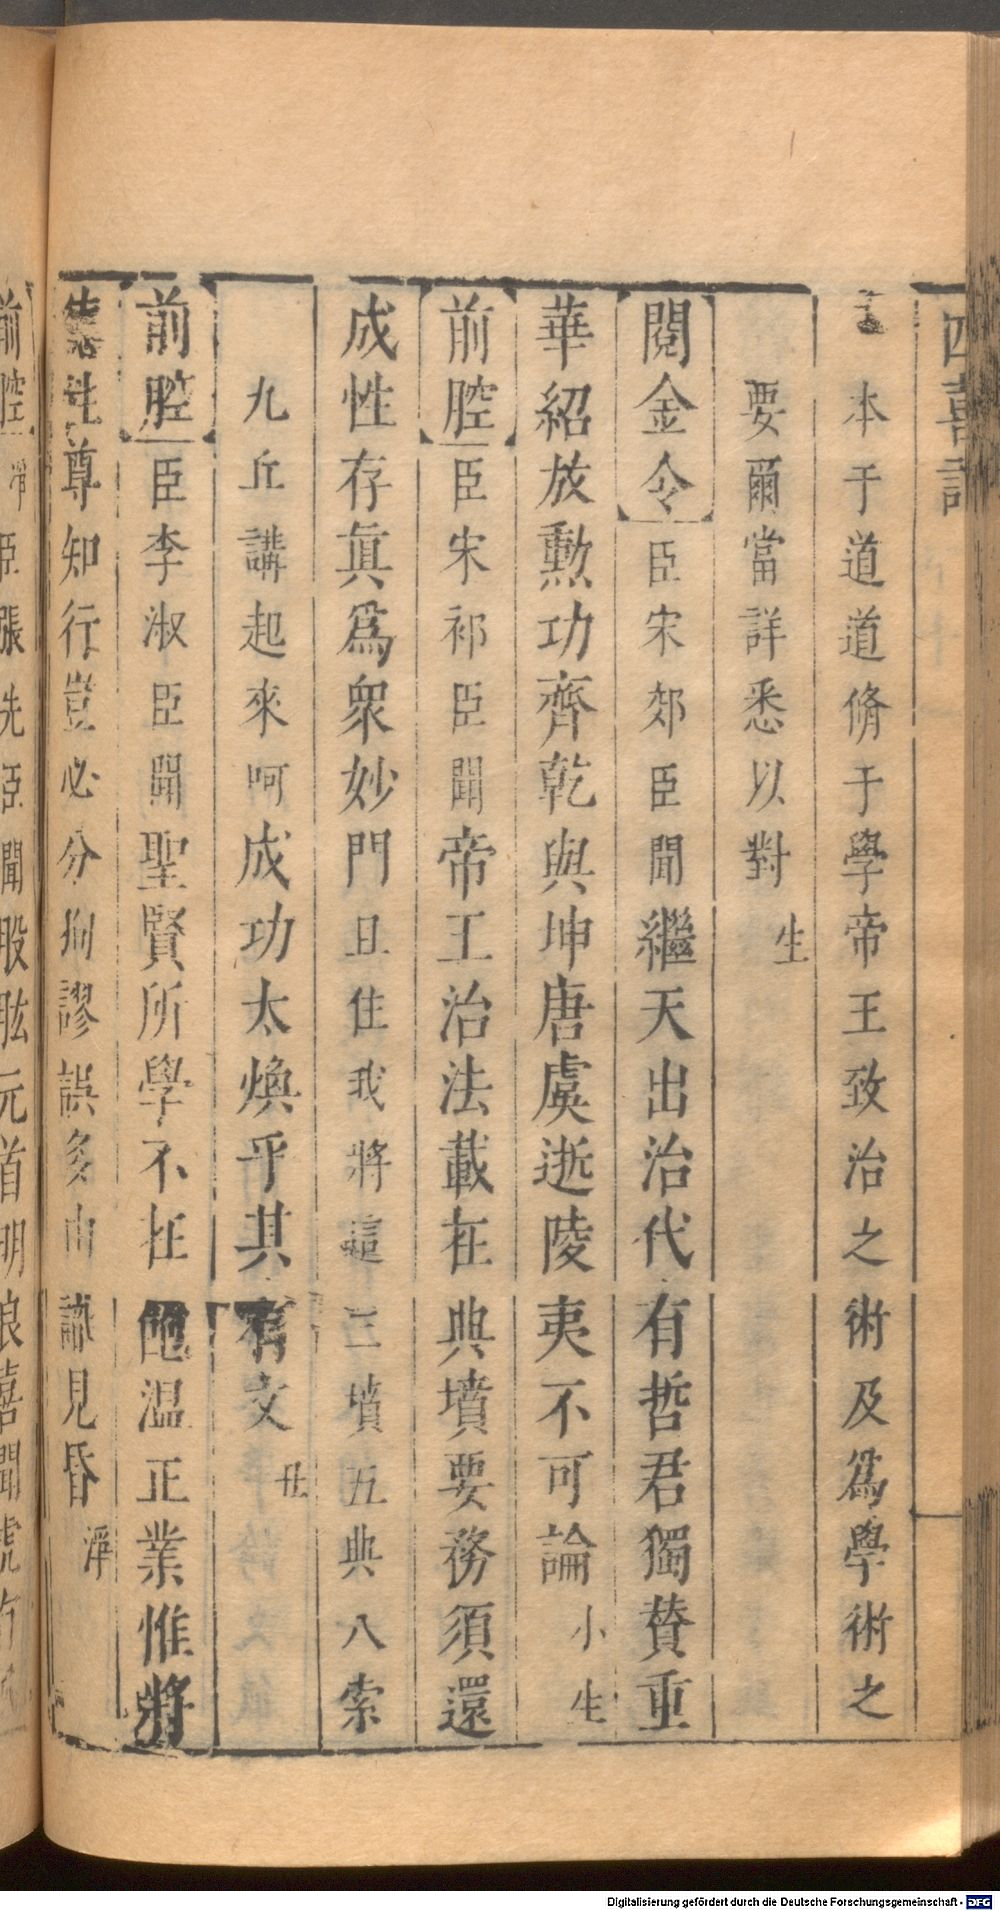 四喜記
本于道道脩于學帝王致治之術及爲學術之
要爾當詳悉以對 生
閱金令臣宋郊臣聞繼天出治代有哲君獨賛重
華紹放勲功齊乾與坤唐虞逝陵夷不可論 小生
前腔臣宋祁臣聞帝王治法載在典墳要務須還
成性存眞爲衆妙門且住我將這三墳五典八索
九丘講起來呵成功太煥乎其有文 丑
前腔臣李淑臣聞聖賢所學不在飽温正業惟將
性尊知行豈必分拘謬誤多由識見昏 淨
前腔臣張先臣聞股肱元首明良喜聞虎
Digitalisierung gefördert durch die Deutsche Forschungsgemeinschaft - DFG